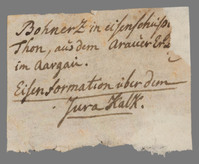 Bohnerz in eisenschüss.
Thon, aus dem Arauer Erz
im Aargau.
Eisenformation über dem
Jura Kalk.